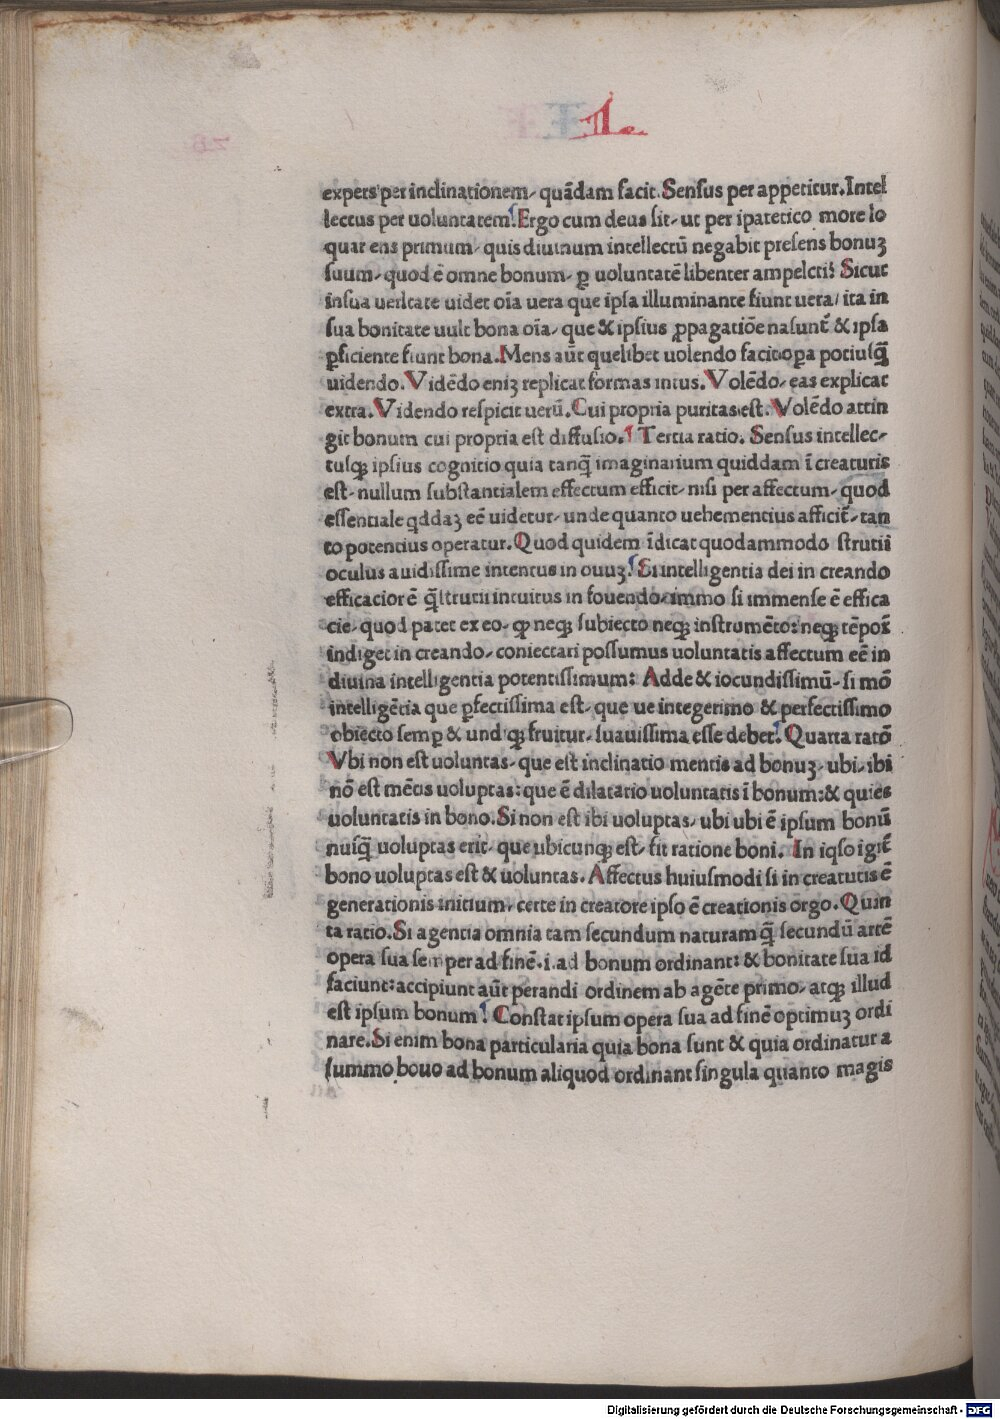 1.
expers per inclinationem, quādam facit. Sensus per appetitur. Intel
lectus per uoluntatem. Ergo cum deus sit, ut per ipatetico more lo
quar ens primum, quis diuinum intellectū negabit presens bonuꝫ
suum, quod ē omne bonum, ꝑ uoluntatē libenter amplecti? Sicut
in sua ueritate uidet oīa uera que ipsa illuminante fiunt uera/ ita in
sua bonitate uult bona oīa, que & ipsius ꝓpagatiōe nasunt̄ & ipsa
ꝑficiente fiunt bona. Mens aūt quelibet uolendo facit oꝑa potiusq̄
uidendo. Vidēdo eniꝫ replicat formas intus. Volēdo, eas explicat
extra. Videndo respicit uerū. Cui propria puritas est. Volēdo attin
git bonum cui propria est diffusio. Tertia ratio. Sensus intellec-
tusqꝫ ipsius cognitio quia tanq̄ imaginarium quiddam ī creaturis
est, nullum substantialem effectum efficit, nisi per affectum, quod
essentiale qddaꝫ eē uidetur, unde quanto uehementius afficit̄, tan
to potentius operatur. Quod quidem īdicat quodammodo strutii
oculus auidissime intentus in ouuꝫ. Si intelligentia dei in creando
efficacior ē q̄ strutii intuitus in fouendo, immo si immense ē effica
cie, quod patet ex eo, ꝙ neqꝫ subiecto neqꝫ instrumēto: neqꝫ tēpoꝝ
indiget in creando, coniectari possumus uoluntatis affectum eē in
diuina intelligentia potentissimum: Adde & iocundissimū, si mō
intelligētia que ꝑfectissima est, que ue integerimo & perfectissimo
obiecto semꝑ & undiqꝫ fruitur, suauissima esse debet. Quarta ratō
Vbi non est uoluntas, que est inclinatio mentis ad bonuꝫ, ubi, ibi
nō est mētis uoluptas: que ē dilatatio uoluntatis ī bonum: & quies
uoluntatis in bono. Si non est ibi uoluptas, ubi ubi ē ipsum bonū
nusq̄ uoluptas erit, que ubicunqꝫ est, fit ratione boni. In iqso igit̄
bono uoluptas est & uoluntas. Affectus huiusmodi si in creatutis ē
generationis initium, certe in creatore ipso ē creationis orgo. Quin
ta ratio. Si agentia omnia tam secundum naturam q̄ secundū artē
opera sua semper ad finē .i. ad bonum ordinant: & bonitate sua id
faciunt: accipiunt aūt perandi ordinem ab agēte primo, atqꝫ illud
est ipsum bonum. Constat ipsum opera sua ad finē optimuꝫ ordi
nare. Si enim bona particularia quia bona sunt & quia ordinatur a
summo bouo ad bonum aliquod ordinant singula quanto magis
Digitalisierung gefördert durch die Deutsche Forschungsgemeinschaft - DFG